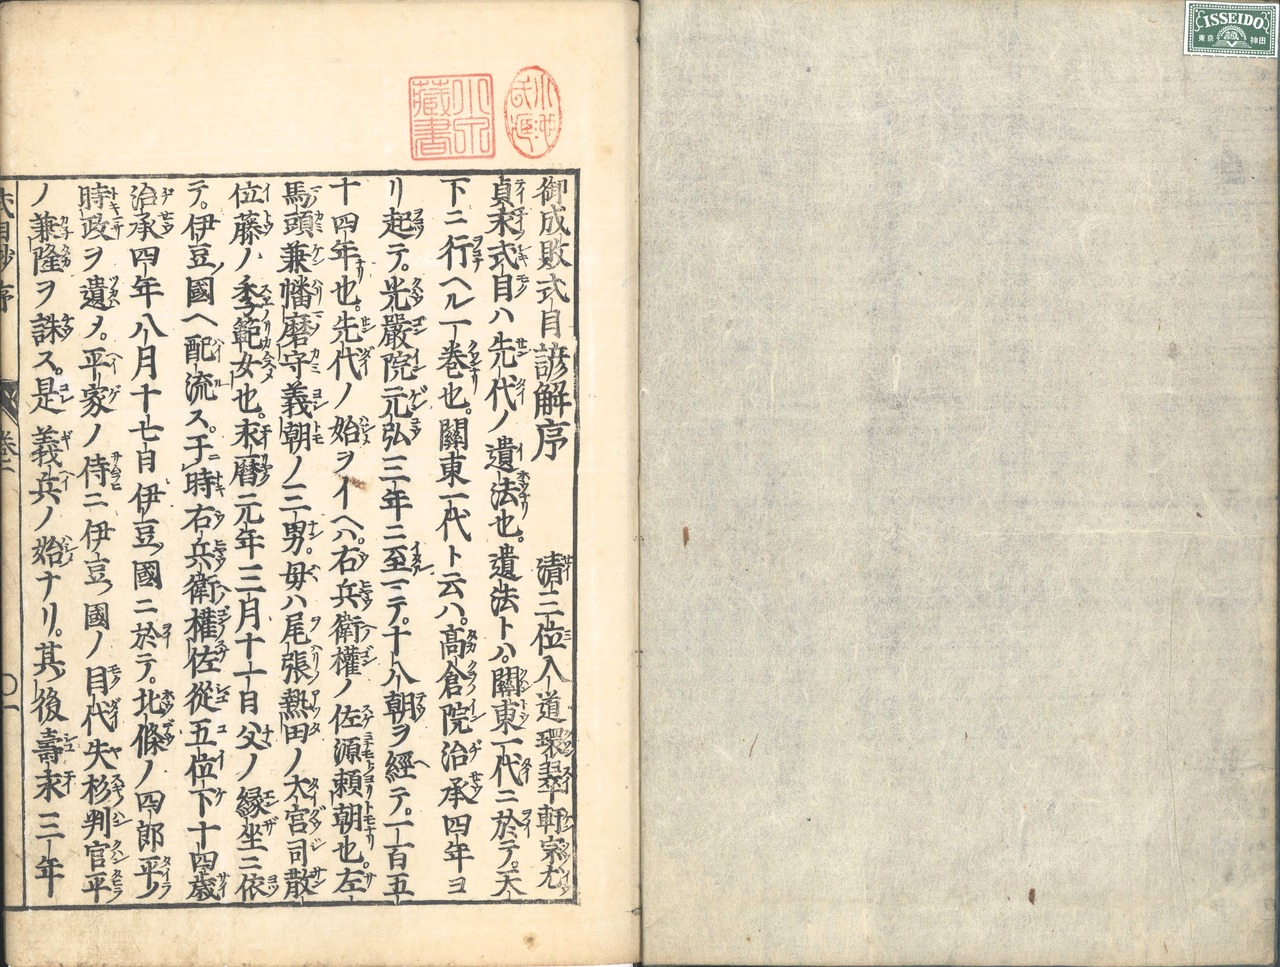 ISSEIDO
東京 神田
小汀氏蔵書
御成敗式目諺解序 清三位入道環翠軒宗尤
貞末式目ハ先代ノ遺法也。遺法トハ。關東一代ニ於テ。天
下ニ行ヘル一巻也。關東一代ト云ハ。髙倉院治承四年ヨ
リ起テ。光嚴院元弘三年ニ至テ。十八朝ヲ經テ。一百五
十四年也。先代ノ始ヲイヘハ。右兵衛權ノ佐源頼朝也。左
馬頭兼幡磨守義朝ノ三男。母ハ尾張熱田ノ大宮司散
位藤ノ季範女也。永暦元年三月十一日父ノ縁坐ニ依
テ。伊豆國ヘ配流ス。于時右兵衛權佐從五位下十四歳
治承四年八月十七日伊豆國ニ於テ。北條ノ四郎平ノ
時政ヲ遺メ。平家ノ侍ニ伊豆國ノ目代矢杉判官平
ノ兼隆ヲ誅ス。是義兵ノ始ナリ。其後壽永三年
式目抄序 巻上 〇一